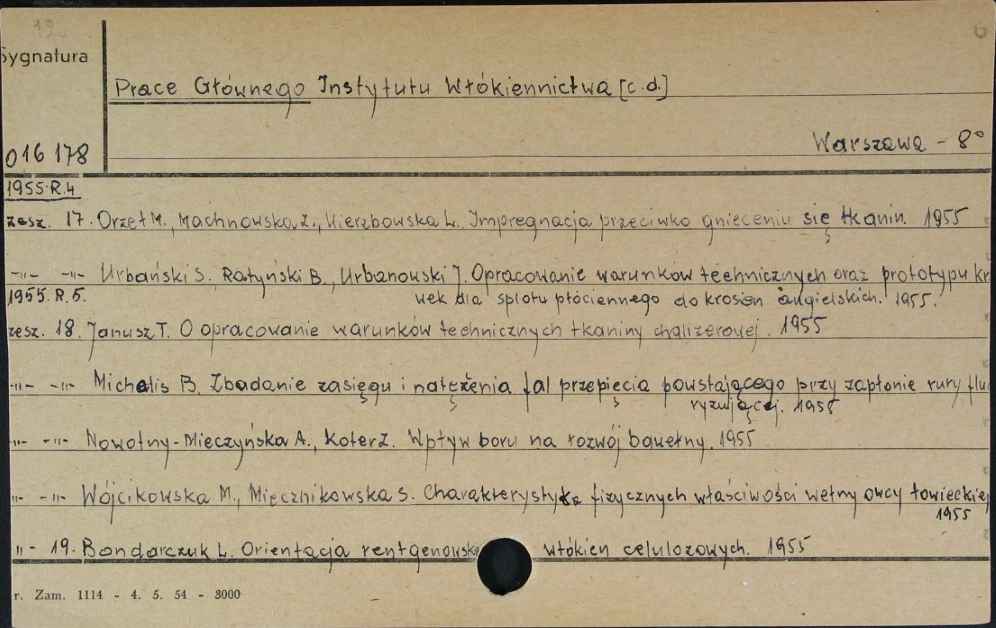 12
Sygnatura
6
Prace Głównego Instytutu Włókiennictwa [c.d.]
016 178
Warszawa - 8°
1955.R.4
zesz. 17. Orzeł M., Machnowska Z., Wierzbowska L. Impregnacja przeciwko gnieceniu się tkanin. 1955
-"- -"- Urbański S., Ratyński B., Urbanowski J. Opracowanie warunków technicznych oraz prototypu kr
1955.R.5.
wek dla splotu płóciennego do krosien angielskich. 1955.
zesz. 18. Janusz T. O opracowanie warunków technicznych tkaniny chalizerowej. 1955
-"- -"- Michalis B. Zbadanie zasięgu i natężenia fal przepięcia powstającego przy zapłonie rury flu
ryzującej. 1955
-"- -"- Nowotny-Mieczyńska A., Koter Z. Wpływ boru na rozwój bawełny. 1955
"- -"- Wójcikowska M., Miecznikowska S. Charakterystyka fizycznych właściwości wełny owcy łowieckiej
1955
"- 19. Bondarczuk L. Orientacja rentgenowska włókien celulozowych. 1955
r. Zam. 1114 - 4. 5. 54 - 3000